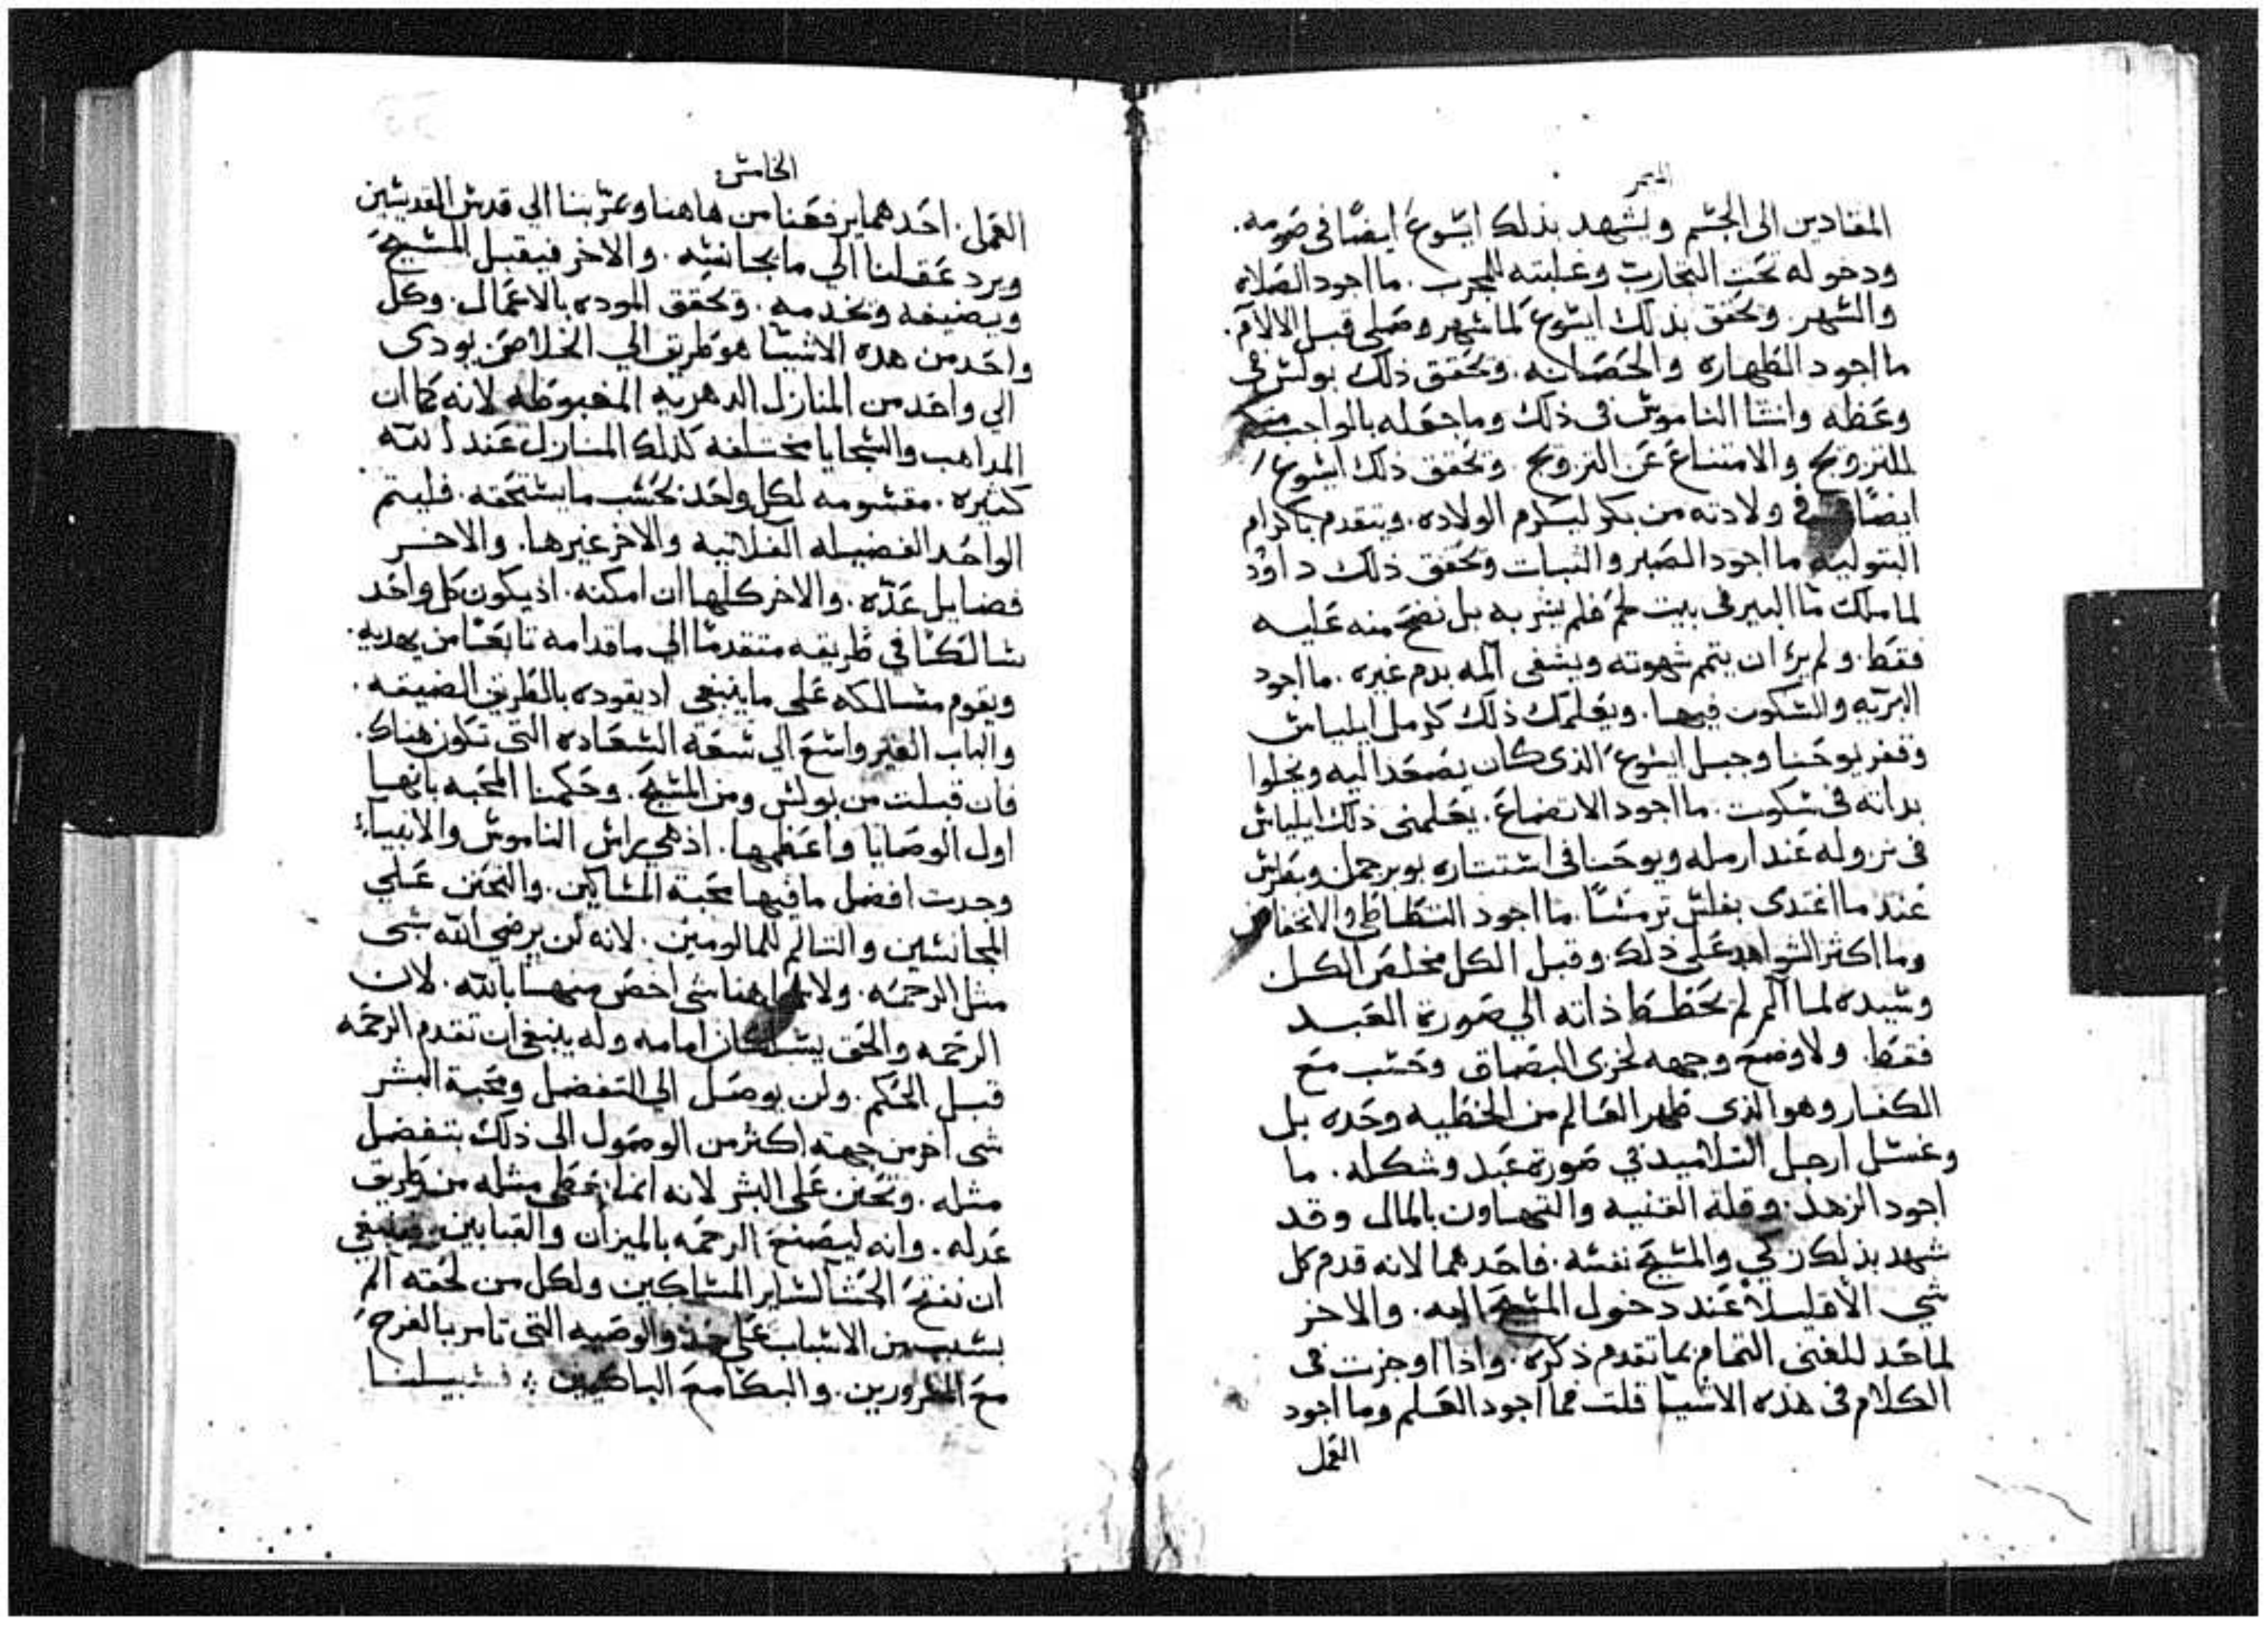 الميمر
المقادين الى الجسم ويشهد بذلك ايسوع ايضًا فى صومه.
ودخوله تحت التجارب وغلبته للمجرب. ما اجود الصلاه
والسهر. وتحقق بذلك ايسوع لما سهر وصلى قبل الالام.
ما اجود الطهاره والحصانه. وتحقق ذلك بولس فى
وعظه وانشا الناموس فى ذلك وما جعله بالواجب
للتزويج والامتناع عن التزويج. وتحقق ذلك ايسوع
ايضًا فى ولادته من بكر ليكرم الولاده. ويتقدم باكرام
البتوليه ما اجود الصبر والثبات وتحقق ذلك داوود
لما ملك ما البير فى بيت لحم فلم يشربه بل نضح منه عليه
فقط. ولم يرا ان يتم شهوته ويشفى المه بدم غيره. ما اجود
البريه والسكون فيها. ويعلمك ذلك كرمل ايلياس
وقفر يوحنا وجبل ايسوع الذى كان يصعد اليه ويخلوا
بداته فى سكوت. ما اجود الاتضاع. يعلمنى ذلك ايلياس
فى نزوله عند ارمله ويوحنا فى استتاره بوبر جمل وبطرس
عند ما اغتدى بفلس ترمسًا. ما اجود التطاطى والانخفاض
وما اكثر الشواهد على ذلك. وقبل الكل مخلص الكل
وسيده لما الم لم يحطط ذاته الي صورة العبد
فقط. ولا وضع وجهه لخزى البصاق وحسب مع
الكفار وهو الذى طهر العالم من الخطيه وحده بل
وغسل ارجل التلاميد في صورة عبد وشكله. ما
اجود الزهد. وقلة القنيه والتهاون بالمال وقد
شهد بذلك زكي والمسيح نفسه. فاحدهما لانه قدم كل
شي الاقليلاً عند دخول المسيح اليه. والاخر
لما حد للغنى التمام بما تقدم ذكره. واذا اوجزت فى
الكلام فى هذه الاشيا قلت فما اجود العلم وما اجود
العمل
الخامس
العمل. احدهما يرفعنا من هاهنا ويمر بنا الي قدس القديسين
ويرد عقلنا الي ما يجانسه. والاخر فيقبل المسيح
ويضيفه وتخدمه. وتحقق الموده بالاعمال. وكل
واحد من هده الاشيا هو طريق الي الخلاص يودى
الي واحد من المنازل الدهريه المغبوطه لانه كما ان
المداهب والسجايا مختلفه كدلك المنازل عند الله
كثيره. مقسومه لكل واحد بحسب ما يستحقه. فليتم
الواحد الفضيله الفلانيه والاخر غيرها. والاخر
فضايل عده. والاخر كلها ان امكنه. اذ يكون كل واحد
سالكًا في طريقه متقدمًا الي ما قدامه تابعًا من يهديه.
ويقوم مسالكه على ما ينبغى اد يقوده بالطريق الضيقه.
والباب الغير واسع الي سعة السعاده التى تكون هناك.
فان قبلت من بولس ومن المسيح. وحكمنا المحبه بانها
اول الوصايا واعظمها. اذ هي براس الناموس والانبياء
وجدت افضل ما فيها محبة المساكين. والتحنن علي
المجانسين والتالم للمالومين. لانه لن يرضي الله بشى
مثل الرحمه. ولا هاهنا شى اخص منها بالله. لان
الرحمه والحق يسلكان امامه وله ينبغى ان تقدم الرحمه
قبل الحكم. ولن يوصل الى التفضل ومحبة البشر
شى اخر من جهته اكثر من الوصول الى ذلك بتفضل
مثله. وتحنن على البشر لانه انما يعطى مثله من طريق
عدله. وانه ليصنع الرحمه بالميزان والقبابين. فينبغي
ان نفتح الحشا لساير المساكين ولكل من لحقه الم
بسبب من الاسباب على حد والوصيه التى تامر بالفرح
مع المسرورين. والبكا مع الباكيين. فسبيلنا